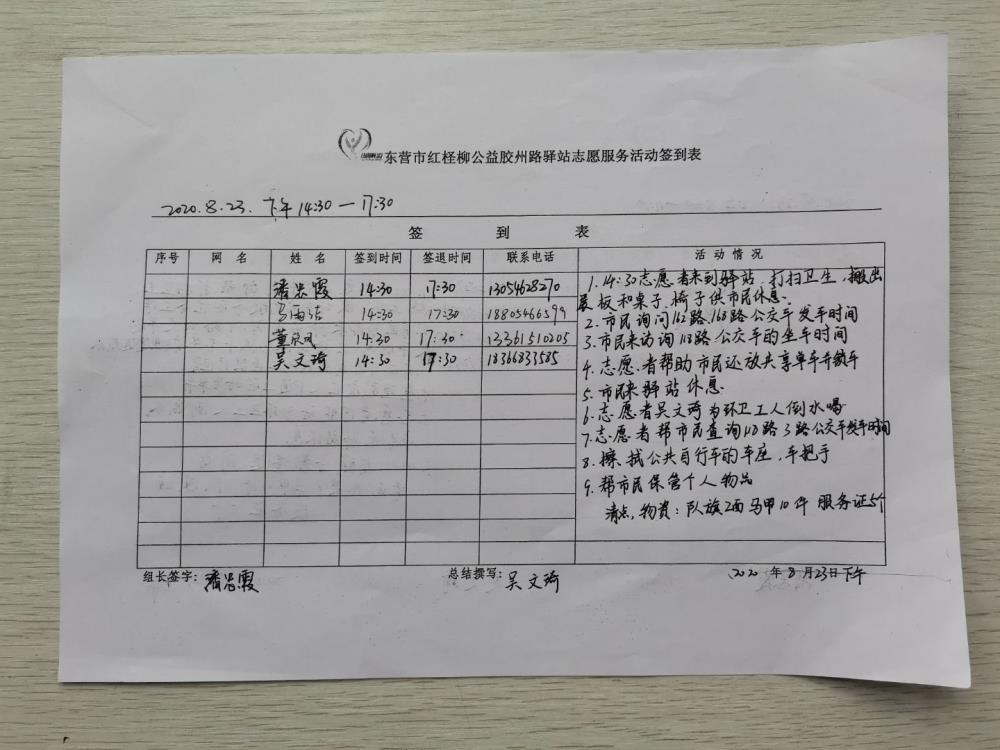 东营市红柽柳公益胶州路驿站志愿服务活动签到表
2020.8.23. 下午 14:30 — 17:30
签 到 表
序号 网 名 姓 名 签到时间 签退时间 联系电话 活动情况
潘忠霞 14:30 17:30 13054628270
14:30 17:30 18805466599
董欣凤 14:30 17:30 13361510205
吴文琦 14:30 17:30 18366833585
1. 14:30志愿者来到驿站,打扫卫生,搬出
展板和桌子、椅子供市民休息.
2. 市民询问162路、168路公交车发车时间
3. 市民来访询118路公交车的坐车时间
4. 志愿者帮助市民还放共享单车开锁车
5. 市民来驿站休息.
6. 志愿者吴文琦为环卫工人倒水喝
7. 志愿者帮市民查询118路 3路公交车发车时间
8. 擦拭公共自行车的车座,车把手
9. 帮市民保管个人物品
清点,物资:队旗2面 马甲10件 服务证5个
组长签字:潘忠霞 总结撰写:吴文琦 2020年8月23日下午